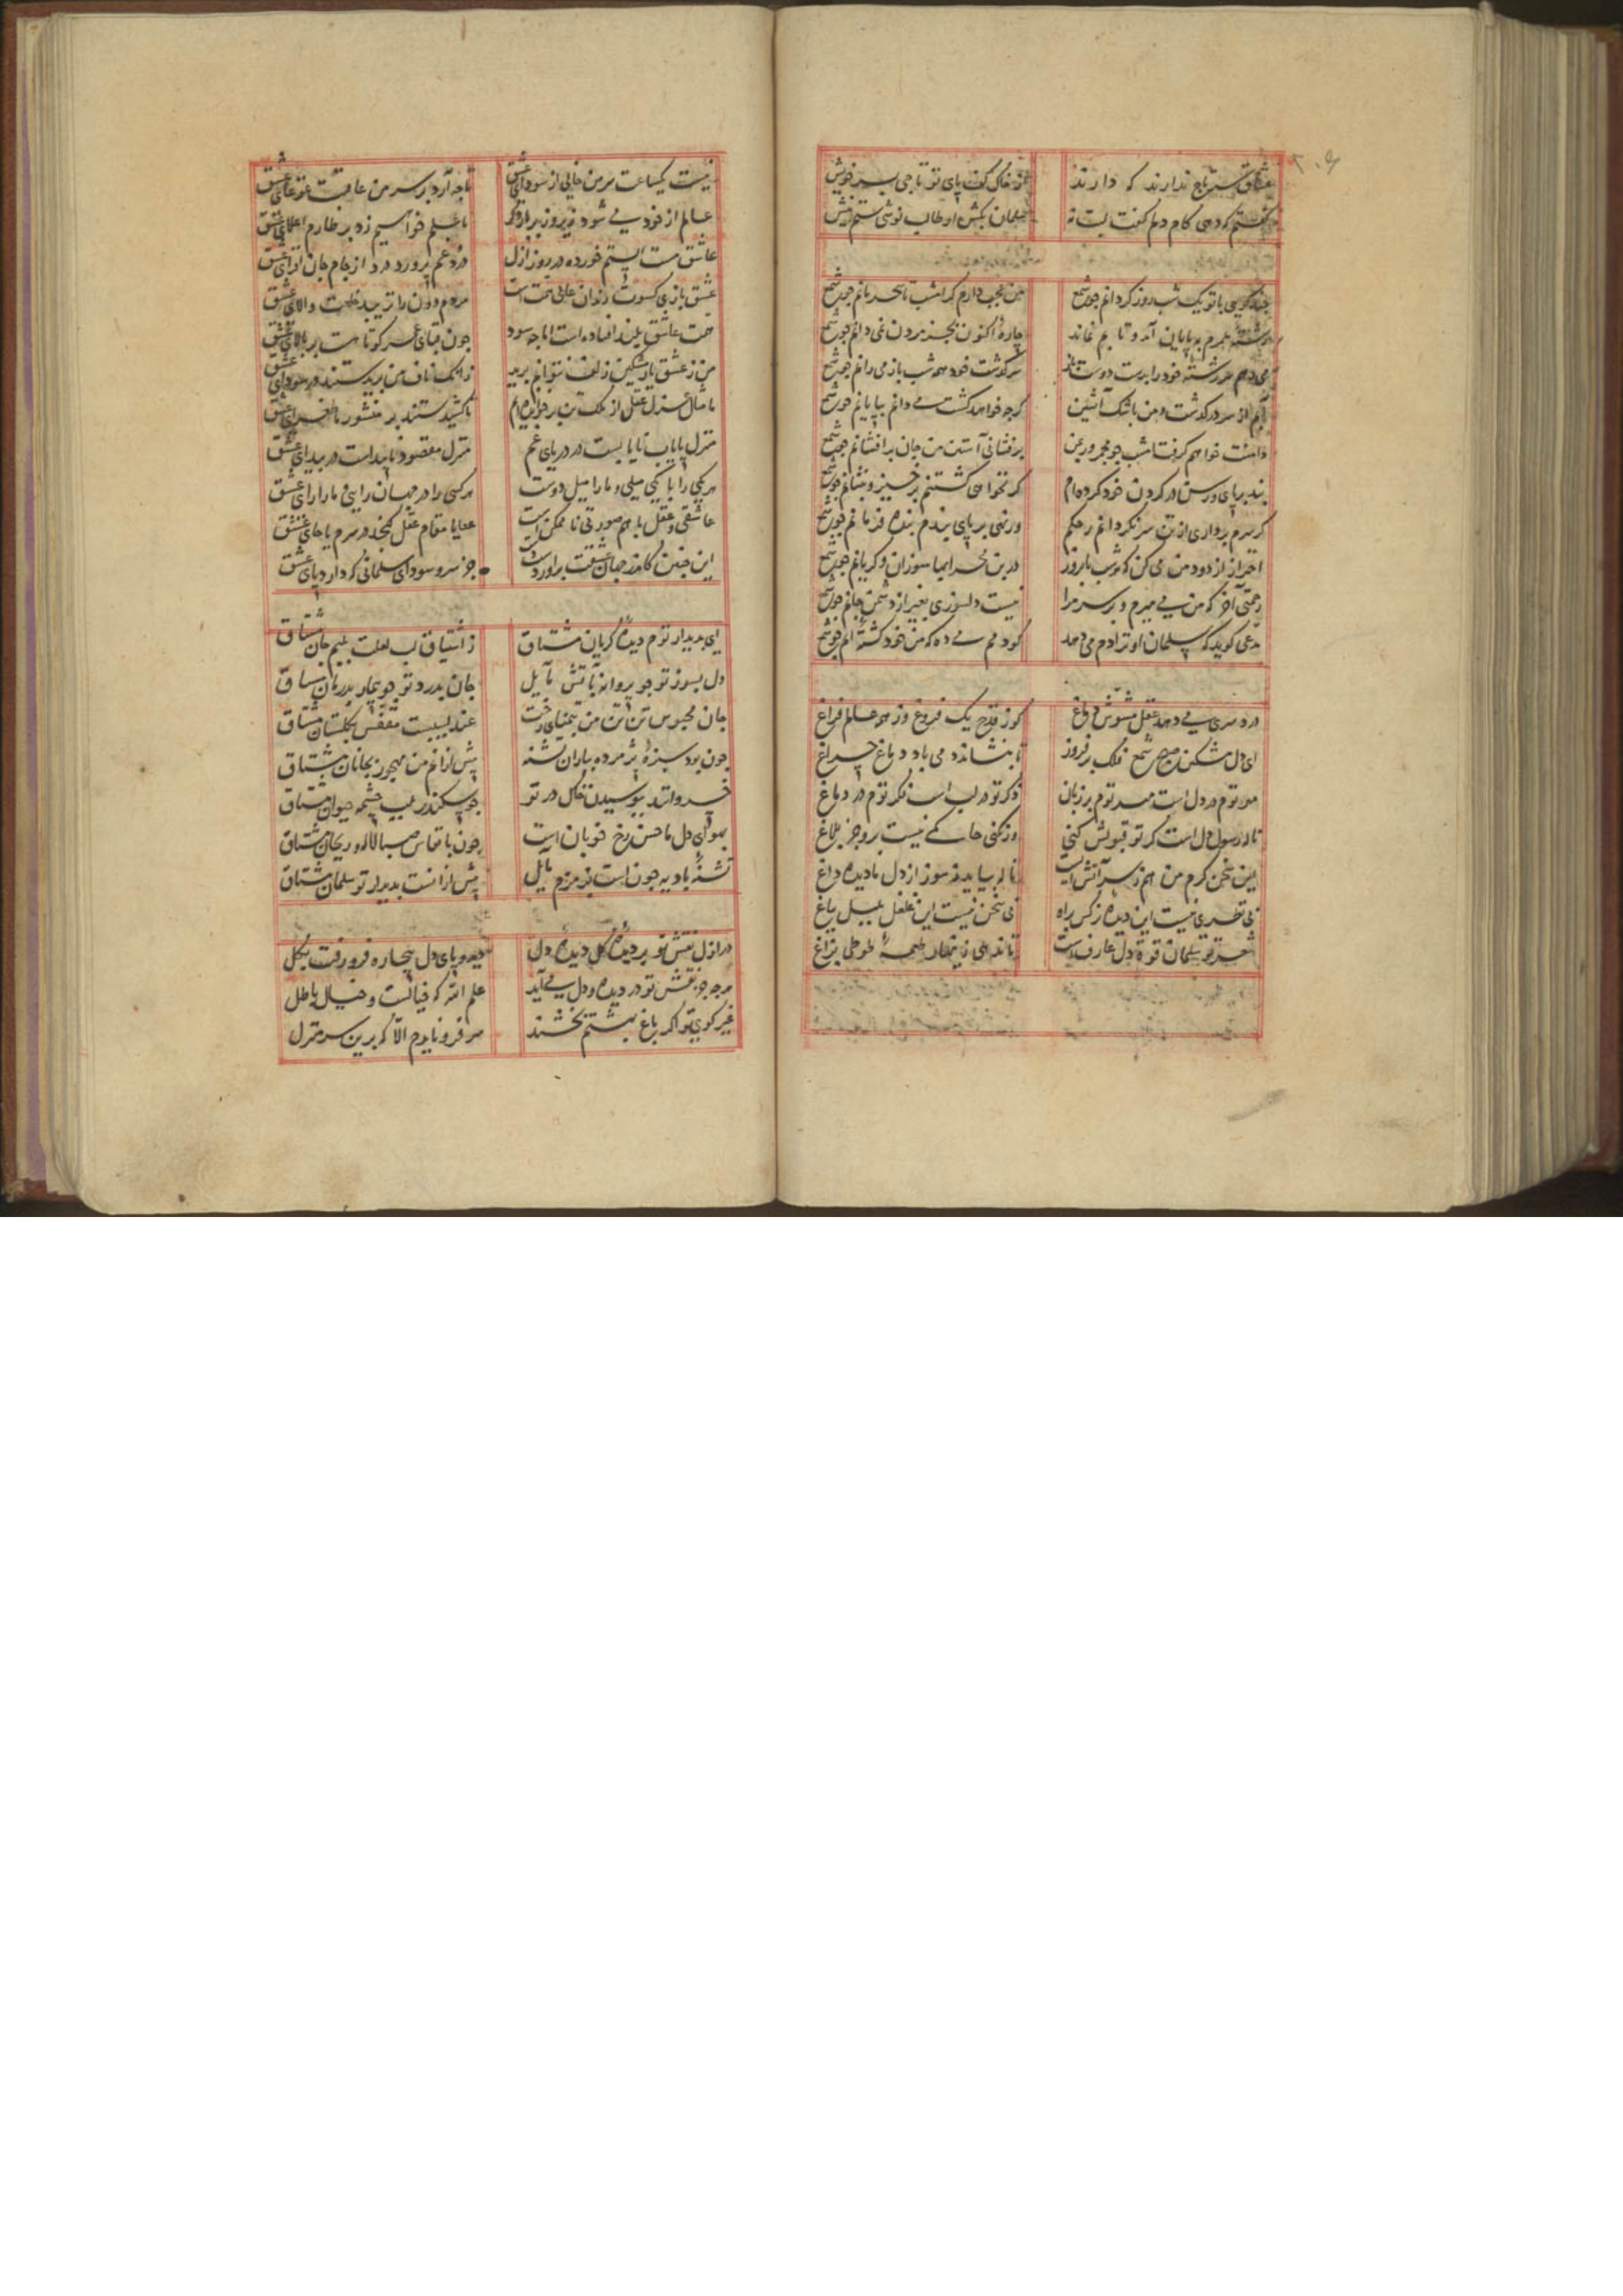 عشاق سر تاج ندارند که دارند از خاک کف پای تو تاجی بسر خویش
گفتم که دهی کام دلم گفت لبت نه سلمان بکش او طالب نوشی ستم نیش
چند گویی با تو یک شب روز گردانم چو شمع من عجب دارم گر امشب تا سحر مانم چو شمع
رشته عمرم به پایان آمد و تابم نماند چاره اکنون بجز مردن نمی دانم چو شمع
می دهم سر رشته خود را بدست دوست باز سرگذشت خود همه شب باز می رانم چو شمع
آبم از سر در گذشت و من باشک آتشین گرچه خواهد کشت می دانم بپایانم چو شمع
دامنت خواهم گرفت امشب چو مجمر ور بمن بر فشانی آستین من جان بر افشانم چو شمع
بند بر پای و رسن در گردن خود کرده ام گر نخواهی کشتنم برخیز و بنشانم چو شمع
گر سرم برداری از تن سر نگردانم ز حکم ور نهی بر پای بندم بنده فرمانم چو شمع
احتراز از دود من می کن که شب تا بروز در بن محرابها سوزان و گریانم چو شمع
رحمتی آخر که من می میرم و بر سر مرا نیست دلسوزی بغیر از دشمن جانم چو شمع
مدعی گوید که سلمان او ترا دم می دهد گو دمم می ده که من خود کشته آنم چو شمع
درد سری می دهد عقل مشوش دماغ کو ز قدح یک فروغ وز همه عالم فراغ
ای دل مشکن صبح شمع فلک بر فروز تا بنشاند دمی باد دماغ چراغ
مهر توم در دل است مهر توم بر زبان ذکر تو در لب است فکر توم در دماغ
ناله رسول دل است گر تو قبولش کنی ور نکنی حاکمی نیست برو جز بلاغ
این سخن گرم من هم ز سر آتش است ناله بیاید ز سوز از دل ما دیده داغ
بی نظری نیست این دیده نرگس براه بی سخن نیست این غلغل بلبل بباغ
شعر تو سلمان قوة دل عارف است تا ندهی زینهار طعمه طوطی بزاغ
نیست یکساعت سر من خالی از سودای عشق تا چه آرد بر سر من عاقبت غوغای عشق
عالم از خود می شود زیر و زبر بار دگر تا علم خواهیم زد بر طارم اعلای عشق
عاشق مست الستم خورده در روز ازل درد غم پرورد درد از جام جان افزای عشق
عشق بازی کسوت رندان عالی همت است مردم دون را نزیبد خلعت والای عشق
همت عاشق بلند افتاده است اما چه سود چون قبای عمر کوتاهست بر بالای عشق
من ز عشق یار مشکین زلف نتوانم برید زانک ناف من بریدستند در سودای عشق
تا مثال عزل عقل از ملک تن بر خوانده ام تا کشیدستند بر منشور ما طغرای عشق
منزل پایاب نایابست در دریای غم منزل مقصود ناپیداست در بیدای عشق
هر یکی را با یکی میلی و ما را میل دوست هر کسی را در جهان رایی و ما را رای عشق
عاشقی و عقل با هم صورتی ناممکن است عقل یا مقام عقل گنجد در سرم یا جای عشق
این چنین کاندر جهان عشقت برآوردست جز سر و سودای سلمانی که دارد پای عشق
ای بدیدار توم دیده گریان مشتاق ز اشتیاق لب لعلت بلبم جان مشتاق
دل بسوز تو چو پروانه بآتش مایل جان بدرد تو چو بیمار بدرمان مشتاق
جان محبوس تن من بتمنای رخت عندلیبیست مقفس بگلستان مشتاق
چون بود سبزه پژمرده بباران تشنه بیش از آنم من مهجور بجانان مشتاق
خسروانند ببوسیدن خاک در تو چو سکندر بلب چشمه حیوان مشتاق
بهوای دل ما حسن رخ خوبان است چون بانفاس صبا لاله و ریحان مشتاق
تشنه بادیه چون است بزمزم مایل بیش از آنست بدیدار تو سلمان مشتاق
در ازل نقش تو بر دیده گل دیده دل دیده و پای دل بیچاره فرو رفت بگل
هر چه جز نقش تو در دیده و دل می آید علم الله که خیالست و خیال باطل
غیر کوی تو اگر باغ بهشتم بخشند سر فرو نایدم الا که برین سر منزل